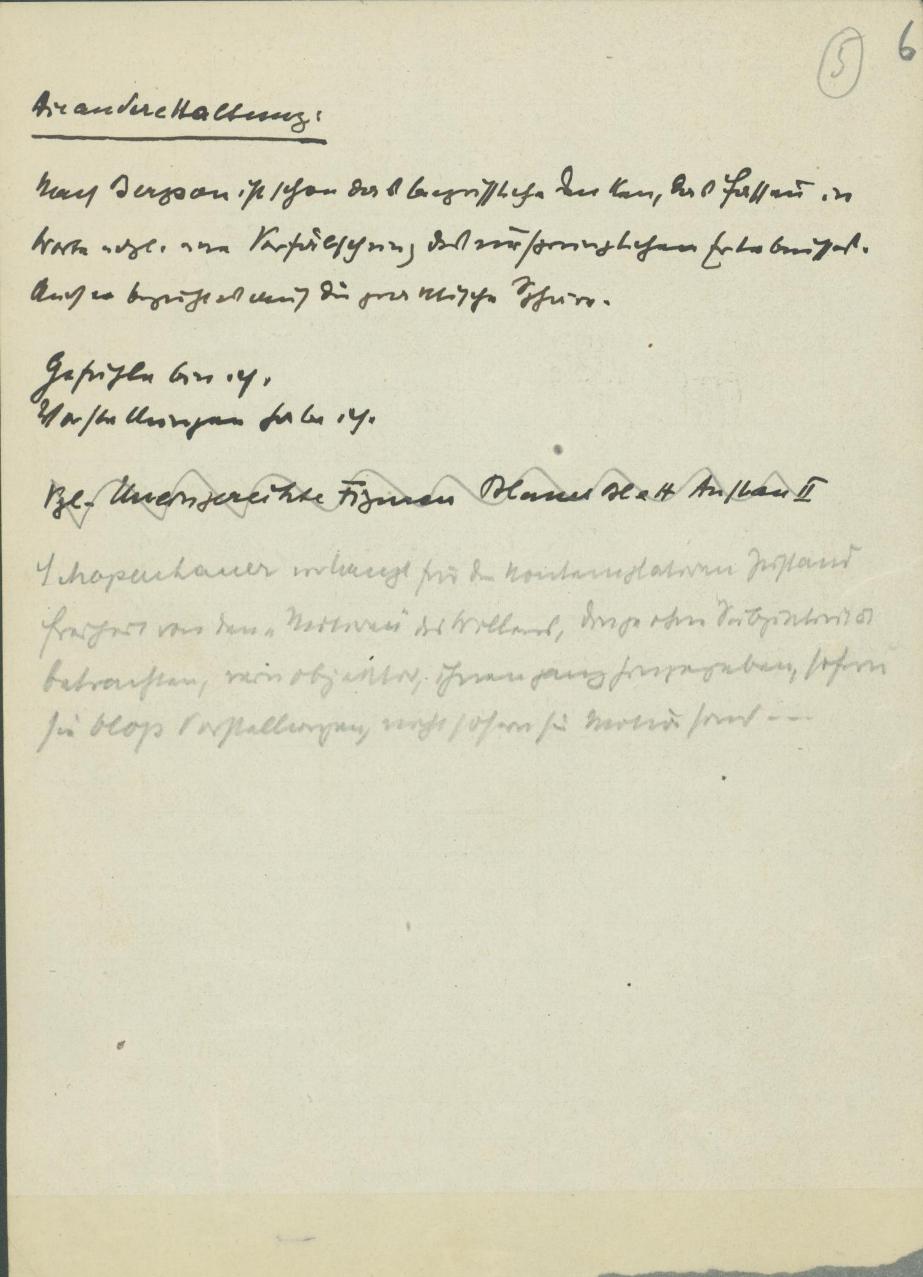 5 6
Die andere Haltung:
Nach Bergson ist schon das begriffliche Denken, das Fassen in
Worte udgl. eine Verfälschung des ursprünglichen Erlebnisses.
Auch er bezieht es auf die praktische Sphäre.
Gefühle bin ich.
Vorstellungen habe ich.
Vgl. Uneingereihte Figuren Blaues Blatt Aufbau II
Schopenhauer verlangt für den kontemplativen Zustand
Freiheit von den „Motiven" des Willens, Dinge ohne Subjektivität
betrachten, rein objektiv, ihnen ganz hingegeben, sofern
sie bloß Vorstellungen, nicht sofern sie Motive sind ---